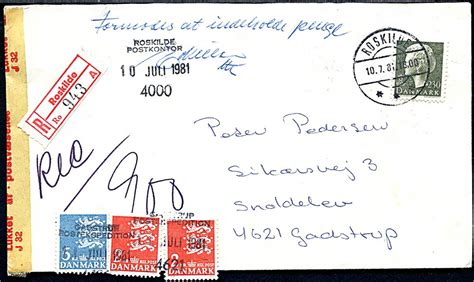 Formodes at indeholde penge
ROSKILDE
POSTKONTOR
10 JULI 1981
4000
ROSKILDE
10.7.81
DANMARK
Lukket af postvæsenet
J 32
R
Roskilde
Ro 943
A
Rec / 900
Peter Pedersen
Sikærsvej 3
Snoldelev
4621 Gadstrup
GADSTRUP
POSTEKSPEDITION
JULI 1981
4621
5
DANMARK
DANMARK
DANMARK